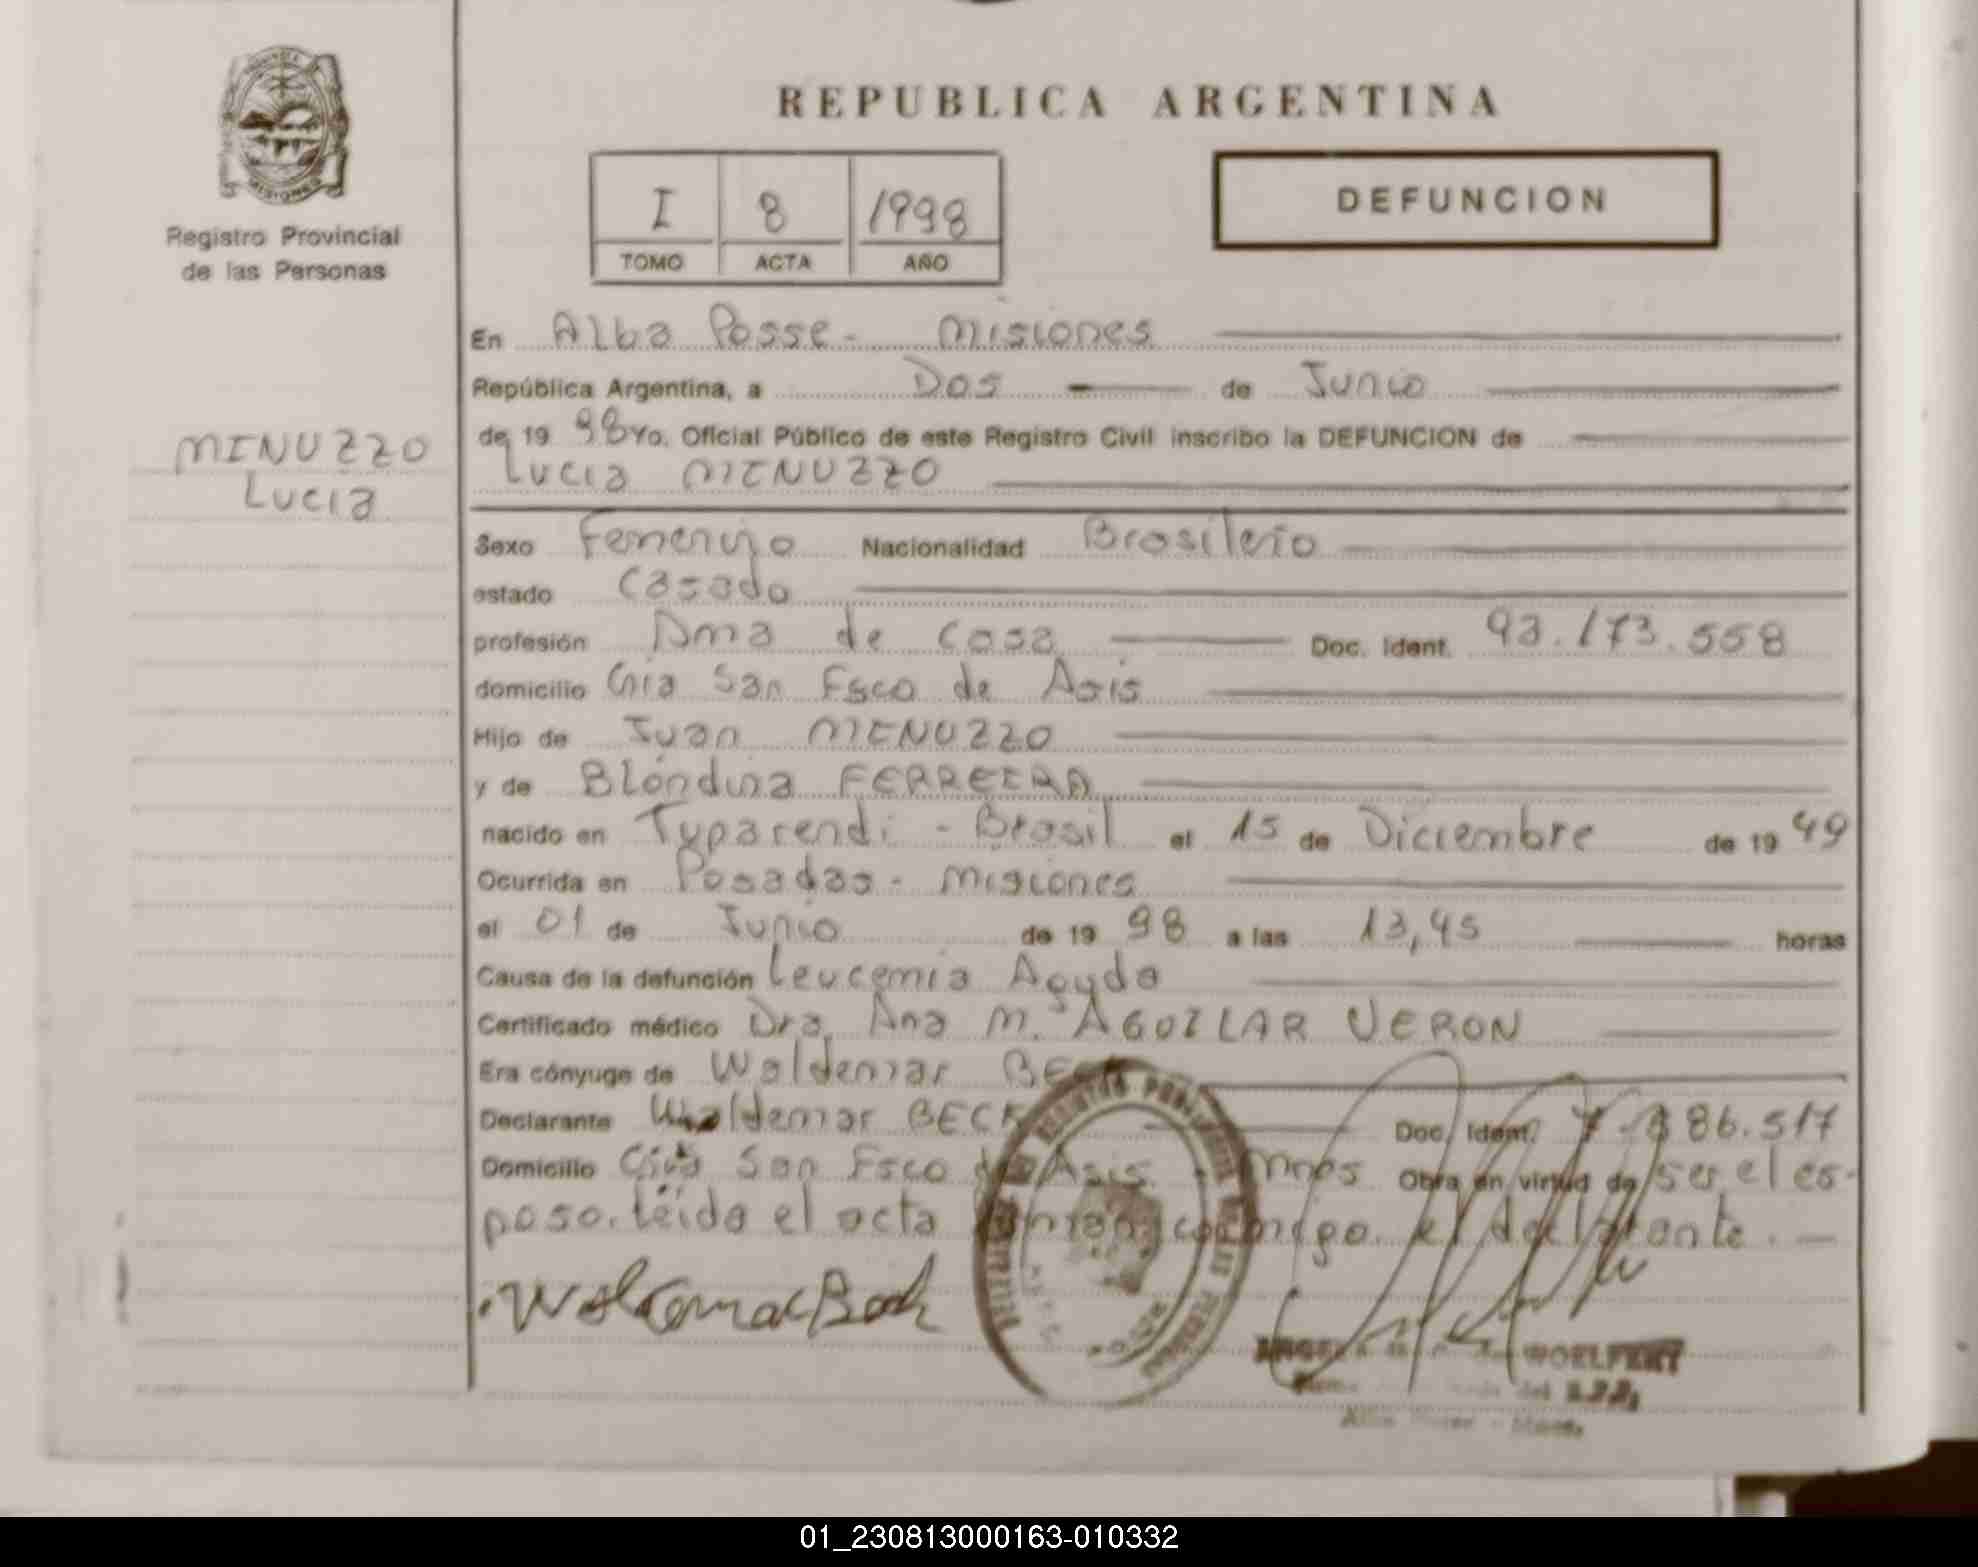 REPUBLICA ARGENTINA
MISIONES
Registro Provincial
de las Personas
I 8 1998
TOMO ACTA AÑO
DEFUNCION
MINUZZO
Lucia
En Alba Posse - Misiones
República Argentina, a Dos de Junio
de 19 98 Yo. Oficial Público de este Registro Civil inscribo la DEFUNCION de
Lucia MINUZZO
Sexo Femenino Nacionalidad Brasileño
estado Casado
profesión Ama de Casa Doc. Ident. 93.173.558
domicilio Cnia San Fsco de Asis
Hijo de Juan MINUZZO
y de Blondina FERREIRA
nacido en Tuparendi - Brasil el 15 de Diciembre de 19 49
Ocurrida en Posadas - Misiones
el 01 de Junio de 19 98 a las 13,45 horas
Causa de la defunción Leucemia Aguda
Certificado médico Dra. Ana M. AGUILAR VERON
Era cónyuge de Waldemar BECK
Declarante Waldemar BECK Doc. Ident. 86.517
Domicilio Cnia San Fsco de Asis - Mnes Obra en virtud de ser el es-
poso. leida el acta firman conmigo el declarante. -
Waldemar Beck
WOELFERT
01_230813000163-010332